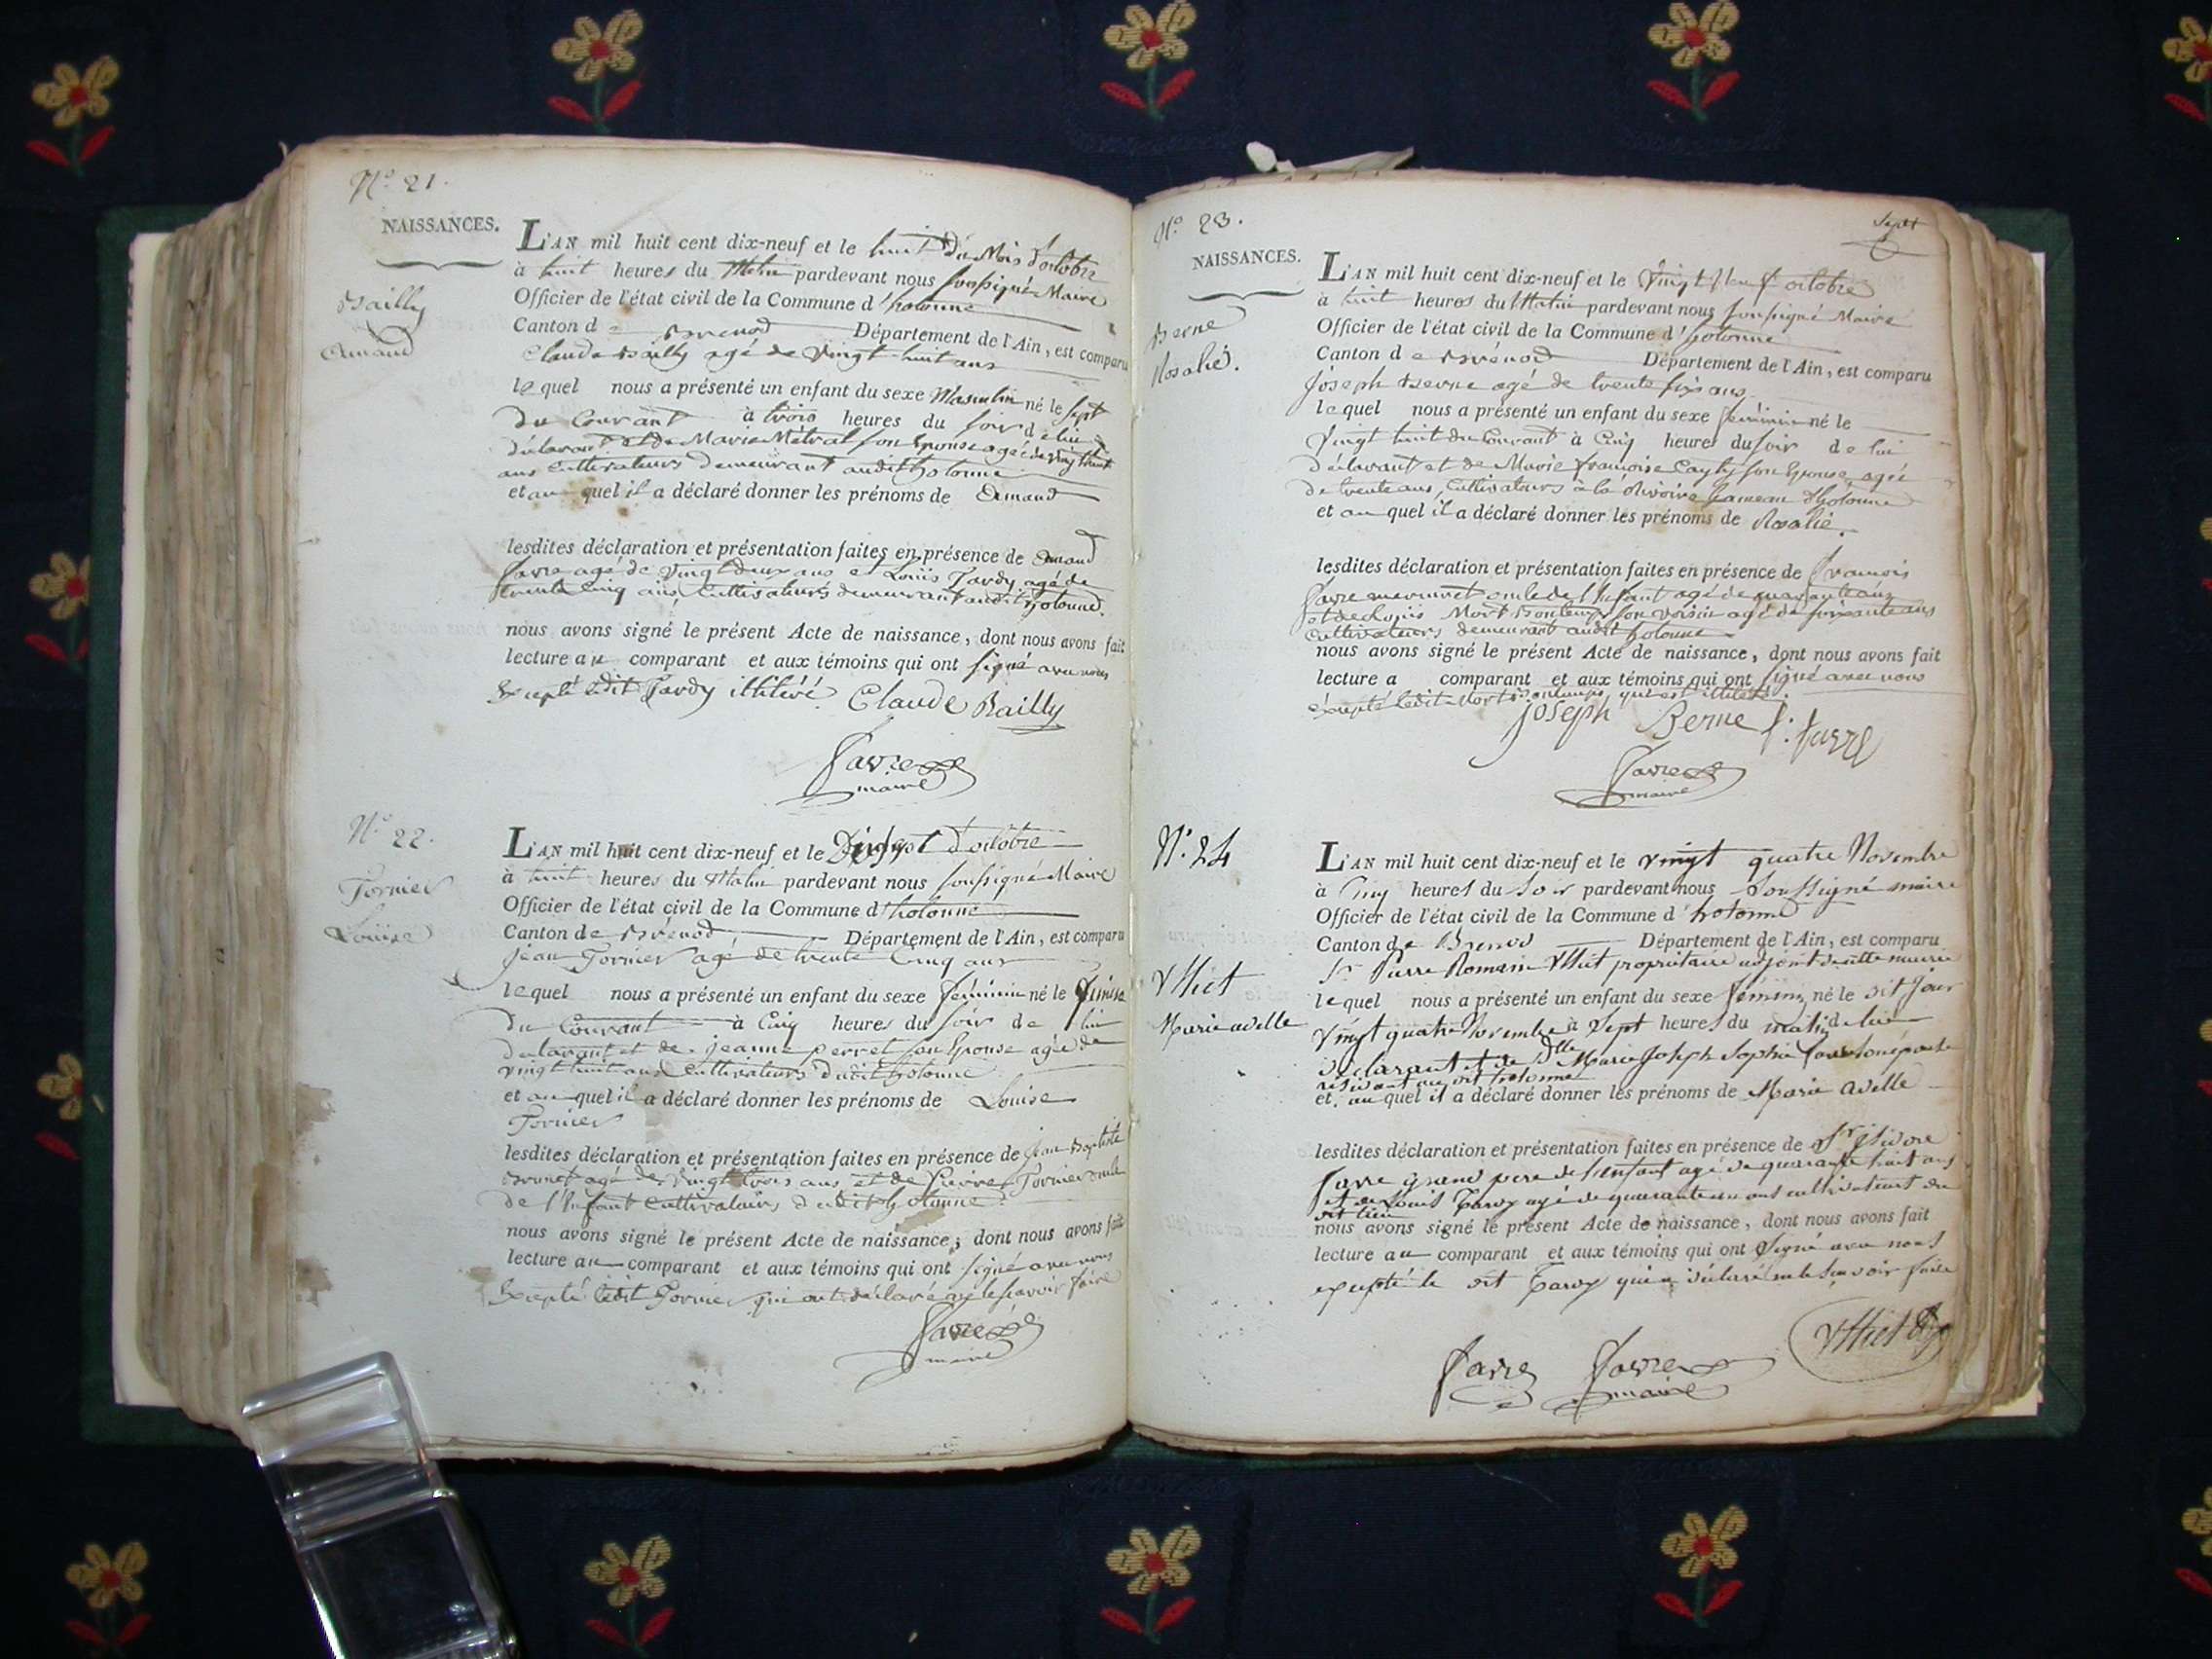 N.° 21.
NAISSANCES.
Bailly
Amand
L'AN mil huit cent dix-neuf et le huit du Mois d'octobre
à huit heures du Matin pardevant nous soussigné Maire
Officier de l'état civil de la Commune d'hotonne
Canton de Brenod Département de l'Ain, est comparu
Claude Bailly agé de vingt huit ans
lequel nous a présenté un enfant du sexe Masculin né le sept
du Courant à trois heures du soir de lui
déclarant et de Marie Métral son Epouse agée de vingt huit
ans cultivateurs demeurant audit hotonne
et au quel il a déclaré donner les prénoms de Amand
lesdites déclaration et présentation faites en présence de Amand
favre agé de vingt deux ans et Louis Tardy agé de
trente Cinq ans, Cultivateurs demeurant audit hotonne.
nous avons signé le présent Acte de naissance, dont nous avons fait
lecture au comparant et aux témoins qui ont signé avec nous
Excepté ledit Tardy illitéré. Claude Bailly
favre
maire
N.° 22.
Tornier
Louise
L'AN mil huit cent dix-neuf et le d'octobre
à huit heures du Matin pardevant nous soussigné Maire
Officier de l'état civil de la Commune d'hotonne
Canton de Brénod Département de l'Ain, est comparu
Jean Tornier agé de trente Cinq ans
lequel nous a présenté un enfant du sexe féminin né le
du Courant à Cinq heures du soir de lui
déclarant et de jeanne perret son Epouse agée de
vingt huit ans Cultivateurs dudit hotonne
et au quel il a déclaré donner les prénoms de Louise
Tornier
lesdites déclaration et présentation faites en présence de jean Baptiste
Brunet agé de vingt trois ans et de Pierre Tornier oncle
de l'Enfant Cultivateurs dudit hotonne.
nous avons signé le présent Acte de naissance; dont nous avons fait
lecture au comparant et aux témoins qui ont signé avec nous
Excepté ledit Tornier qui ont déclaré ne le savoir faire
favre
maire
N.° 23.
Sept
NAISSANCES.
Berne
Rosalie.
L'AN mil huit cent dix-neuf et le vingt neuf octobre
à huit heures du Matin pardevant nous soussigné Maire
Officier de l'état civil de la Commune d'hotonne
Canton de Brénod Département de l'Ain, est comparu
Joseph Berne agé de trente six ans
lequel nous a présenté un enfant du sexe féminin né le
vingt huit du Courant à Cinq heures du soir de lui
déclarant et de Marie françoise Cayly son Epouse, agée
de trente ans, Cultivateurs à la hameau d'hotonne
et au quel il a déclaré donner les prénoms de Rosalie.
lesdites déclaration et présentation faites en présence de françois
favre oncle de l'Enfant agé de quarante ans
et de Louis son voisin agé de soixante ans
Cultivateurs demeurant audit hotonne
nous avons signé le présent Acte de naissance, dont nous avons fait
lecture a comparant et aux témoins qui ont signé avec nous
éxcepté ledit qui est illitéré.
joseph Berne f. favre
favre
maire
N.° 24
Marie adelle
L'AN mil huit cent dix-neuf et le vingt quatre Novembre
à Cinq heures du Soir pardevant nous Soussigné maire
Officier de l'état civil de la Commune d'hotonne
Canton de Brenod Département de l'Ain, est comparu
Sr Pierre Romain propriétaire adjoint de cette mairie
lequel nous a présenté un enfant du sexe féminin né le dit Jour
vingt quatre Novembre à Sept heures du matin de lui
déclarant et de Dlle Marie Joseph Sophie favre son épouse
résidant au dit hotonne
et au quel il a déclaré donner les prénoms de Marie adelle
lesdites déclaration et présentation faites en présence de Sr isidore
favre grand pere de l'enfant agé de quarante huit ans
et de Louis Tardy agé de quarante un ans cultivateurs du
dit lieu
nous avons signé le présent Acte de naissance, dont nous avons fait
lecture au comparant et aux témoins qui ont Signé avec nous
excepté le dit Tardy qui a déclaré ne le Savoir faire
favre favre
maire